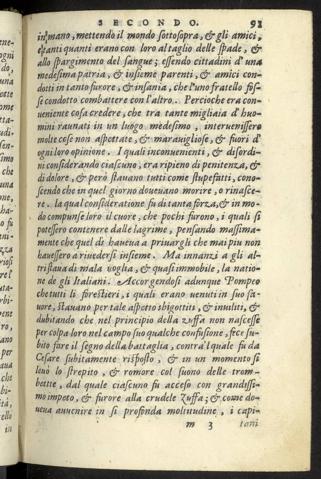 SECONDO. 91
in mano, mettendo il mondo sottosopra, & gli amici,
& quanti erano con loro al taglio delle spade, &
allo spargimento del sangue; essendo cittadini d'una
medesima patria, & insieme parenti, & amici con-
dotti in tanto furore, & insania, che l'uno fratello fos-
se condotto combattere con l'altro. Percioche era con-
ueniente cosa credere, che tra tante migliaia d'huo-
mini raunati in un luogo medesimo, interuenissero
molte cose non aspettate, & marauigliose, & fuori d'
ogni loro opinione. I quali inconuenienti, & disordi-
ni considerando ciascuno, era ripieno di penitenza, &
di dolore, & però stauano tutti come stupefatti, cono-
scendo che in quel giorno doueuano morire, o rinasce-
re. la qual consideratione fu di tanta forza, & in mo-
do compunse loro il cuore, che pochi furono, i quali si
potessero contenere dalle lagrime, pensando massima-
mente che quel dì haueua a priuargli che mai piu non
hauessero a riuedersi insieme. Ma innanzi a gli al-
tri staua di mala voglia, & quasi immobile, la natio-
ne de gli Italiani. Accorgendosi adunque Pompeo
che tutti li forestieri, i quali erano venuti in suo fa-
uore, stauano per tale aspetto sbigottiti, & inuiliti, &
dubitando che nel principio della zuffa non nascesse
per colpa loro nel campo suo qualche confusione, fece su-
bito fare il segno della battaglia, contra'l quale fu da
Cesare subitamente risposto, & in un momento si
leuò lo strepito, & romore col suono delle trom-
bette, dal quale ciascuno fu acceso con grandissi-
mo impeto, & furore alla crudele zuffa; & come do-
ueua auuenire in si profonda moltitudine, i capi-
m 3 tani